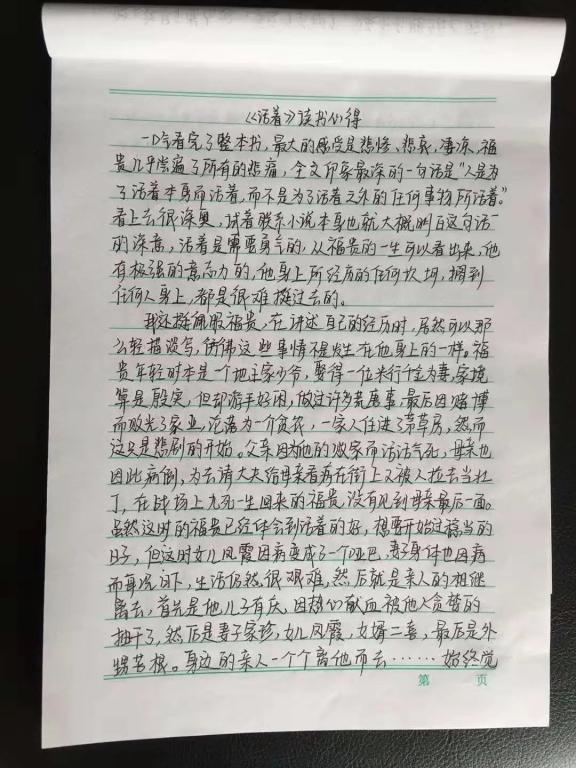 《活着》读书心得
一口气看完了整本书，最大的感受是悲惨、悲哀、凄凉，福
贵几乎尝遍了所有的悲痛，全文印象最深的一句话是“人是为
了活着本身而活着，而不是为了活着之外的任何事物所活着。”
看上去很深奥，试着联系小说本身也就大概明白这句话
的深意，活着是需要勇气的，从福贵的一生可以看出来，他
有极强的意志力的，他身上所经历的任何坎坷，搁到
任何人身上，都是很难挺过去的。
我还挺佩服福贵，在讲述自己的经历时，居然可以那
么轻描淡写，仿佛这些事情不是发生在他身上的一样。福
贵年轻时本是一个地主家少爷，娶得一位米行千金为妻，家境
算是殷实，但却游手好闲，做过许多荒唐事，最后因赌博
而败光了家业，沦落为一介贫农，一家人住进了茅草房，然而
这只是悲剧的开始。父亲因为他的败家而活活气死，母亲也
因此病倒，为去请大夫给母亲看病在街上又被人拉去当壮
丁，在战场上九死一生回来的福贵，没有见到母亲最后一面。
虽然这时的福贵已经体会到活着的好，想要开始过稳当的
日子，但这时女儿凤霞因病变成了一个哑巴，妻子身体也因病
而每况日下，生活仍然很艰难，然后就是亲人的相继
离去，首先是他儿子有庆，因热心献血被他人贪婪的
抽干了，然后是妻子家珍，女儿凤霞，女婿二喜，最后是外
甥苦根。身边的亲人一个个离他而去……始终觉
第 页